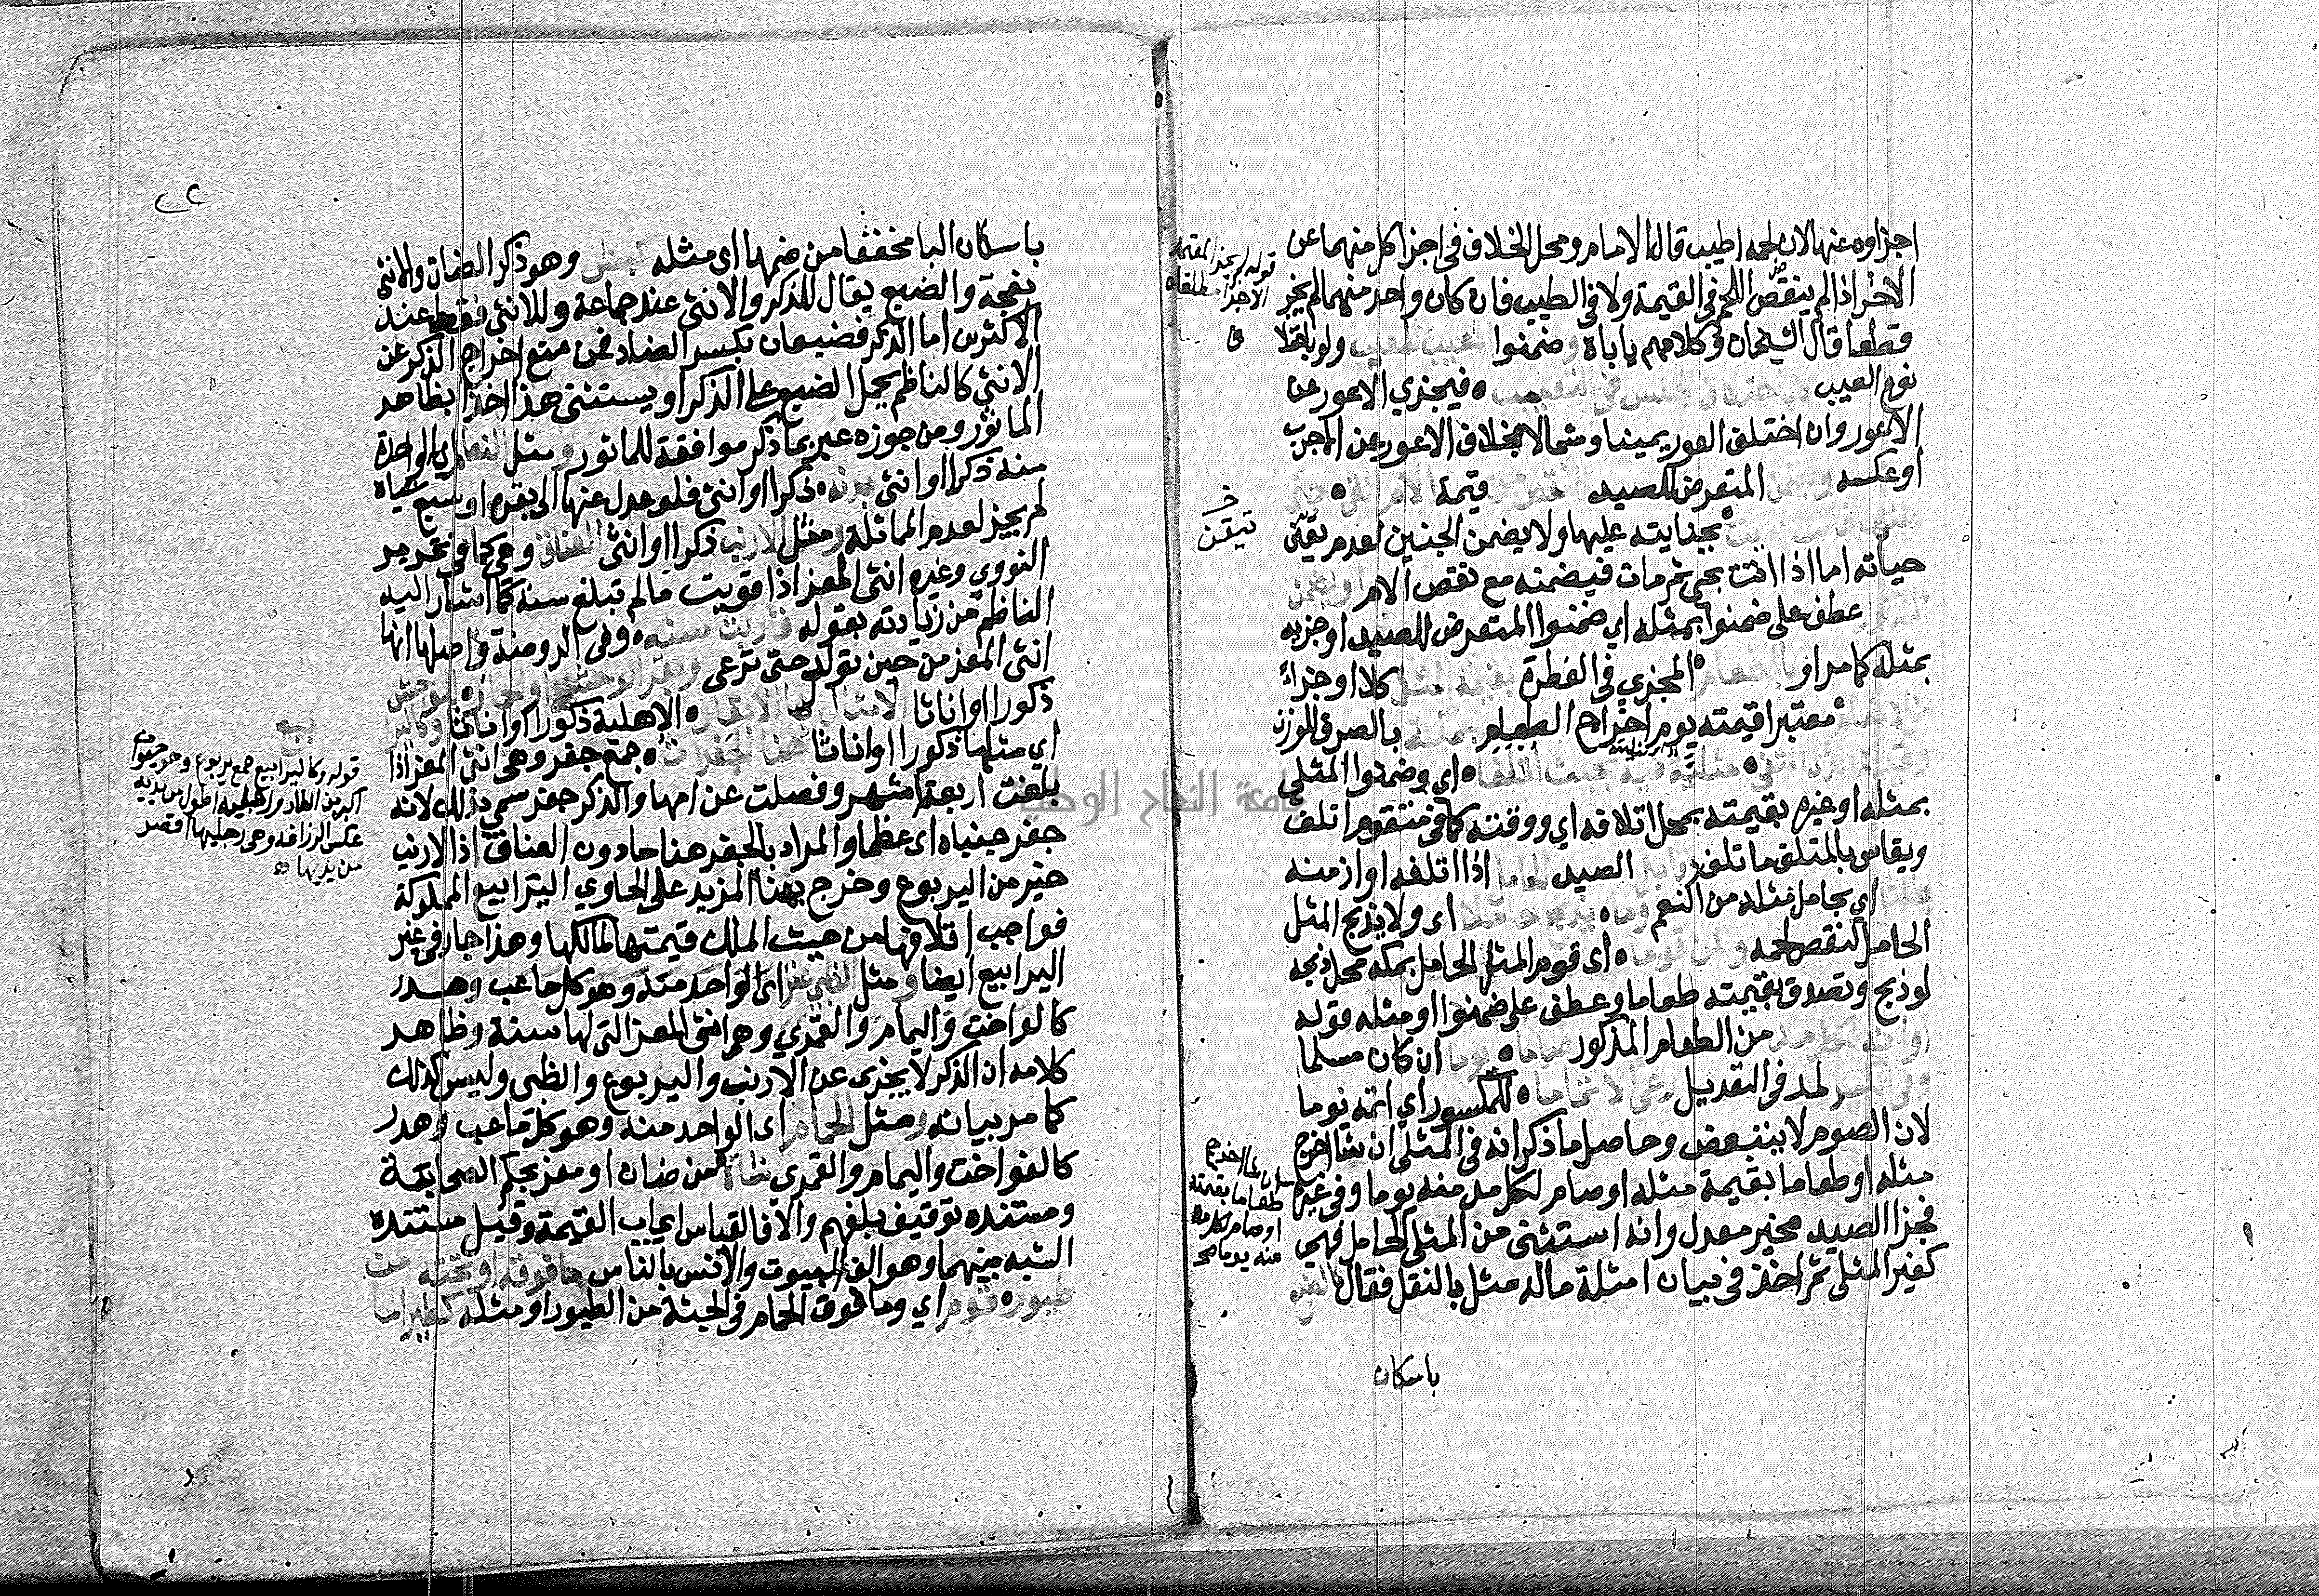 اجزاوه عنها لان لحمه اطيب قال الامام ومحل الخلاف في اجزا كل منهما عن
الاخر اذا لم ينقص اللحم في القيمة ولا في الطيب فان كان واحد منهما لم يجز
قطعا قال الشيخان وكلامهم ياباه وضمنوا المعيب المعيب ولو
نوع العيب الجنس في التعييب فيجزي الاعور عن
الاعور وان اختلف العور يمينا وشمالا بخلاف الاعور عن الاجرب
او عكسه ويضمن المتعرض للصيد قيمة الام التي جنى
عليها بجنايته عليها ولا يضمن الجنين لعدم تيقن
حياته اما اذا القت بحي ثم مات فيضمنه مع نقص الام او ليضمن
عطف على ضمنوا بمثله اي ضمنوا المتعرض للصيد او جزيه
بمثله كما مر او بالطعام المجزي في الفطرة بقيمة المثل كلا او جزاً
معتبرا قيمته يوم اخراج الطعام بمكة بالصرف للوزن
مثلية فيه بحيث اتلفا اي وضمنوا المثلي
بمثله او غيره بقيمته بمحل اتلافه اي ووقته كما في متقوم اتلف
ويقاس بالمتلف ما تلف وقابل الصيد الحامل اذا اتلفه او ازمنه
بالمثل اي بحامل مثله من النعم وما يذبح حاملا اي ولا يذبح المثل
الحامل لنقص لحمه ولكن قوما اي قوم المثل الحامل بمكة محل ذبحه
لو ذبح وتصدق بقيمته طعاما وعطف على ضمنوا او مثله قوله
لكل مد من الطعام المذكور صاما يوما ان كان مسلما
وفي الكسر لمد في التعديل رعى الاتماما للمكسور اي اتمه يوما
لان الصوم لا يتبعض وحاصل ما ذكر انه في المثلي ان شا اخرج
مثله او طعاما بقيمة مثله او صام لكل مد منه يوما وفي غيره
فجزا الصيد مخير معدل وانه استثنى من المثلي الحامل فهي
كغير المثلي ثم اخذ في بيان امثلة ماله مثل بالنقل فقال الضبع
باسكان
تيقن
طعاما بقيمته
او صام لكل مد
منه يوما صح
٢٢
باسكان البا مخففا من ضمها اي مثله كبش وهو ذكر الضان والانثى
نعجة والضبع يقال للذكر والانثى عند جماعة وللانثى فقط عند
الاكثرين اما الذكر فضبعان بكسر الضاد فمن منع اخراج الذكر عن
الانثى كالناظم يحمل الضبع على الذكر او يستثنى هذا اخذا بظاهر
الماثور ومن جوزه عبر بما ذكر موافقة للماثور ومثل النعام اي الواحدة
منه ذكرا او انثى بدنة ذكرا او انثى فلو عدل عنها الى بقرة او سبع شياه
لم يجز لعدم المماثلة ومثل الارنب ذكرا او انثى العناق وهي كما في تحرير
النووي وغيره انثى المعز اذا قويت مالم تبلغ سنة كما اشار اليه
الناظم من زيادته بقوله قاربت سنه وفي الروضة واصلها انها
انثى المعز من حين تولد حتى ترعى وبقر الوحش
ذكورا او اناثا الامثال لها الابقار الاهلية ذكورا او اناثا وكاليرا
بيع
اي مثلها ذكورا او اناثا هنا الجفرات جمع جفر وهي انثى المعز اذا
بلغت اربعة اشهر وفصلت عن امها والذكر جفر سمي بذلك لانه
جفر جنباه اي عظما والمراد بالجفر هنا مادون العناق اذ الارنب
خير من اليربوع وخرج بهذا المزيد على الحاوي اليرابيع المملوكة
فواجب اتلافها من حيث الملك قيمتها لمالكها وهذا جار في غير
اليرابيع ايضا ومثل الظبي عنز اي الواحد منه وهو كل ما عب وهدر
كالواخت واليمام والقمري وهو انثى المعز التي لها سنة وظاهر
كلامه ان الذكر لا يجزى عن الارنب واليربوع والظبي وليس كذلك
كما مر بيانه ومثل الحمام اي الواحد منه وهو كل ما عب وهدر
كالفواخت واليمام والقمري شاة من ضان او معز بحكم الصحابة
ومستنده توقيف بلغهم والا فالقياس ايجاب القيمة وقيل مستنده
الشبه بينهما وهو الف البيوت والانس بالناس مافوقه او تحته من
طيوره قوم اي وما فوق الحمام في الجثة من الطيور او مثله كطير الما
قوله وكاليرابيع جمع يربوع وهو حيوان
اكبر من الفار ورجليه اطول من يديه
عكس الزرافة وهي رجليها اقصر
من يديها
جامعة النجاح الوطنية